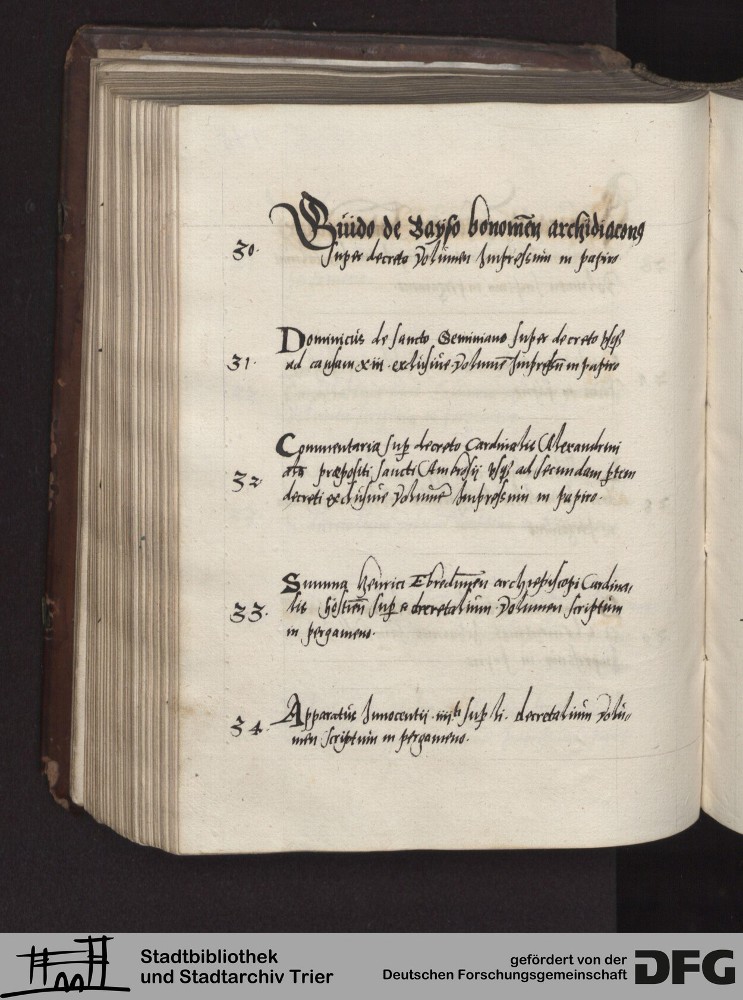 Guido de Bayso bonomen̄ archidiacong
30. Super decreto Volumen Impressum in papiro
Dominicus de sancto Geminiano super decreto vsq
31. ad causam xiii. exclusiue. Volumē Impressū in papiro
Commentaria sup decreto Cardinalis Alexandrini
32. als præpositi sancti Ambrosij vsq ad secundam ptem
decreti exclusiue Volumē Impressum in papiro.
Summa henrici Ebredunen archiepiscopi Cardina-
33. lis hostien̄ sup decretalium Volumen scriptum
in pergameno.
34. Apparatus Innocentii iiiiti sup li. decretalium Volu=
men scriptum in pergameno.
Stadtbibliothek
und Stadtarchiv Trier
gefördert von der
Deutschen Forschungsgemeinschaft
DFG